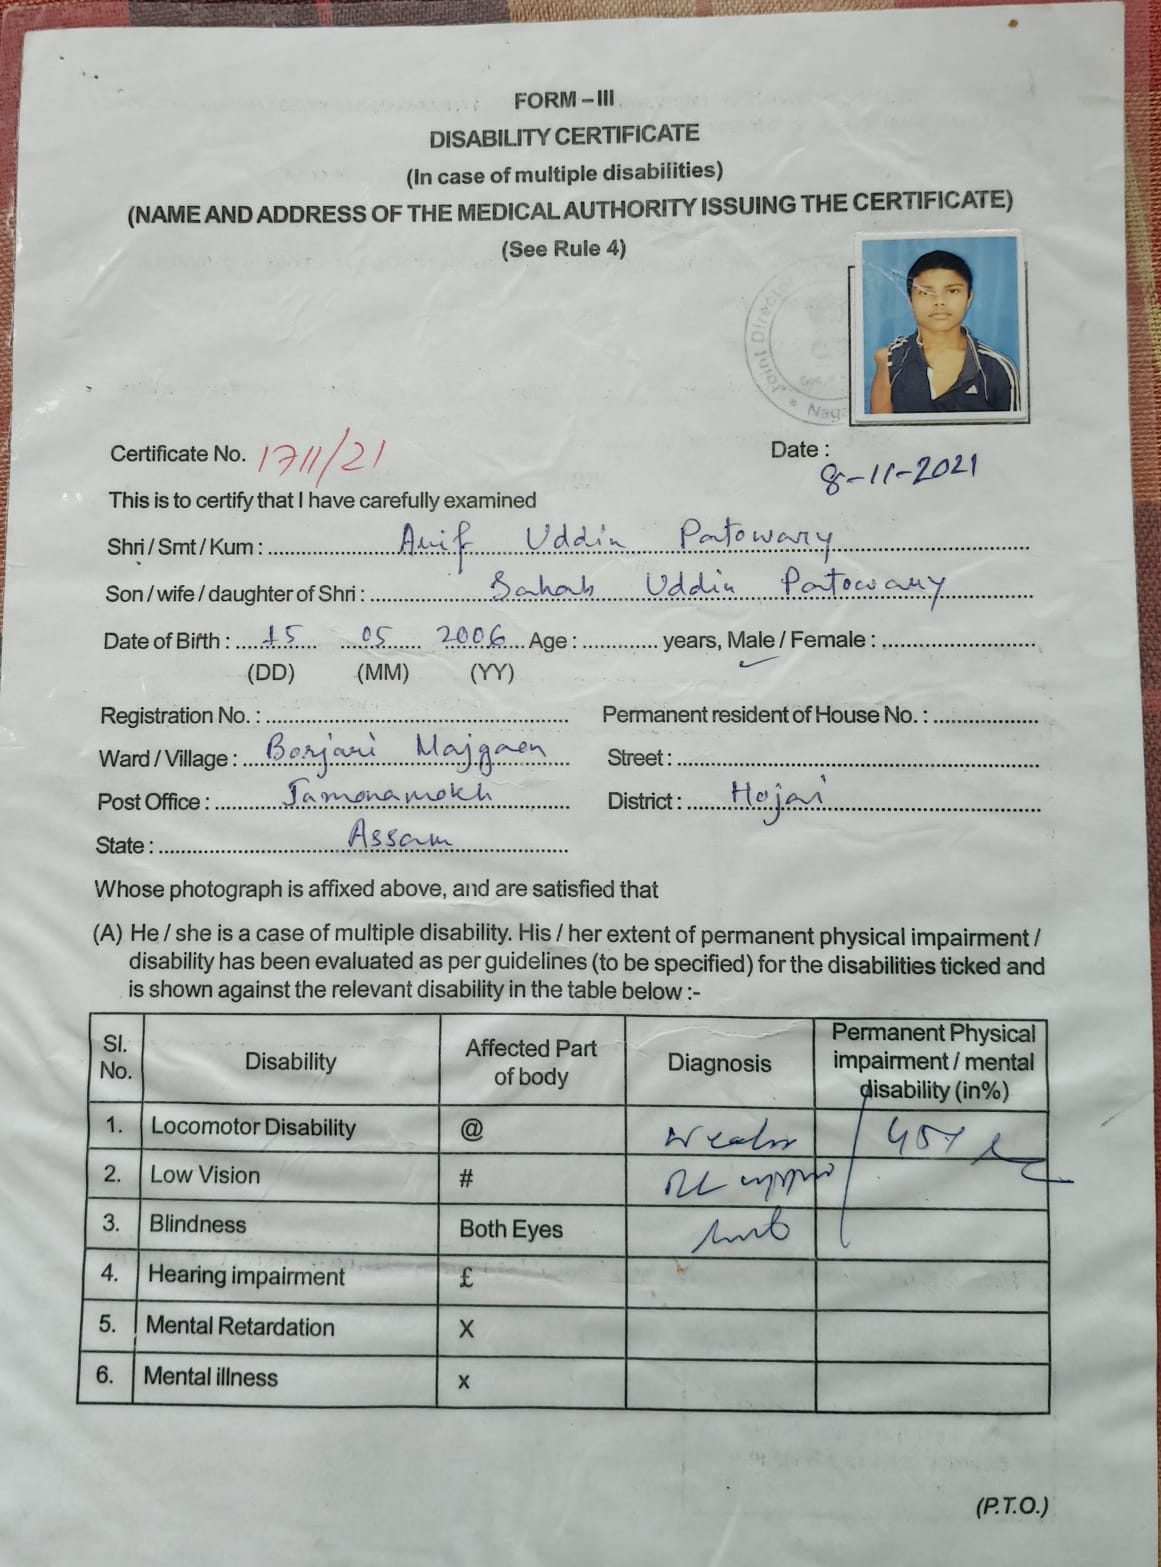 FORM – III
DISABILITY CERTIFICATE
(In case of multiple disabilities)
(NAME AND ADDRESS OF THE MEDICAL AUTHORITY ISSUING THE CERTIFICATE)
(See Rule 4)
Joint Director
Certificate No. 1711/21 Date : 8-11-2021
This is to certify that I have carefully examined
Shri / Smt / Kum : Arif Uddin Patowary
Son / wife / daughter of Shri : Sahab Uddin Patowary
Date of Birth : 15 05 2006 Age : years, Male / Female :
(DD) (MM) (YY)
Registration No. : Permanent resident of House No. :
Ward / Village : Borjari Majgaon Street :
Post Office : Jamunamukh District : Hojai
State : Assam
Whose photograph is affixed above, and are satisfied that
(A) He / she is a case of multiple disability. His / her extent of permanent physical impairment /
disability has been evaluated as per guidelines (to be specified) for the disabilities ticked and
is shown against the relevant disability in the table below :-
Sl. No. Disability Affected Part of body Diagnosis Permanent Physical impairment / mental disability (in%)
1. Locomotor Disability @ 45%
2. Low Vision #
3. Blindness Both Eyes
4. Hearing impairment £
5. Mental Retardation X
6. Mental illness x
(P.T.O.)